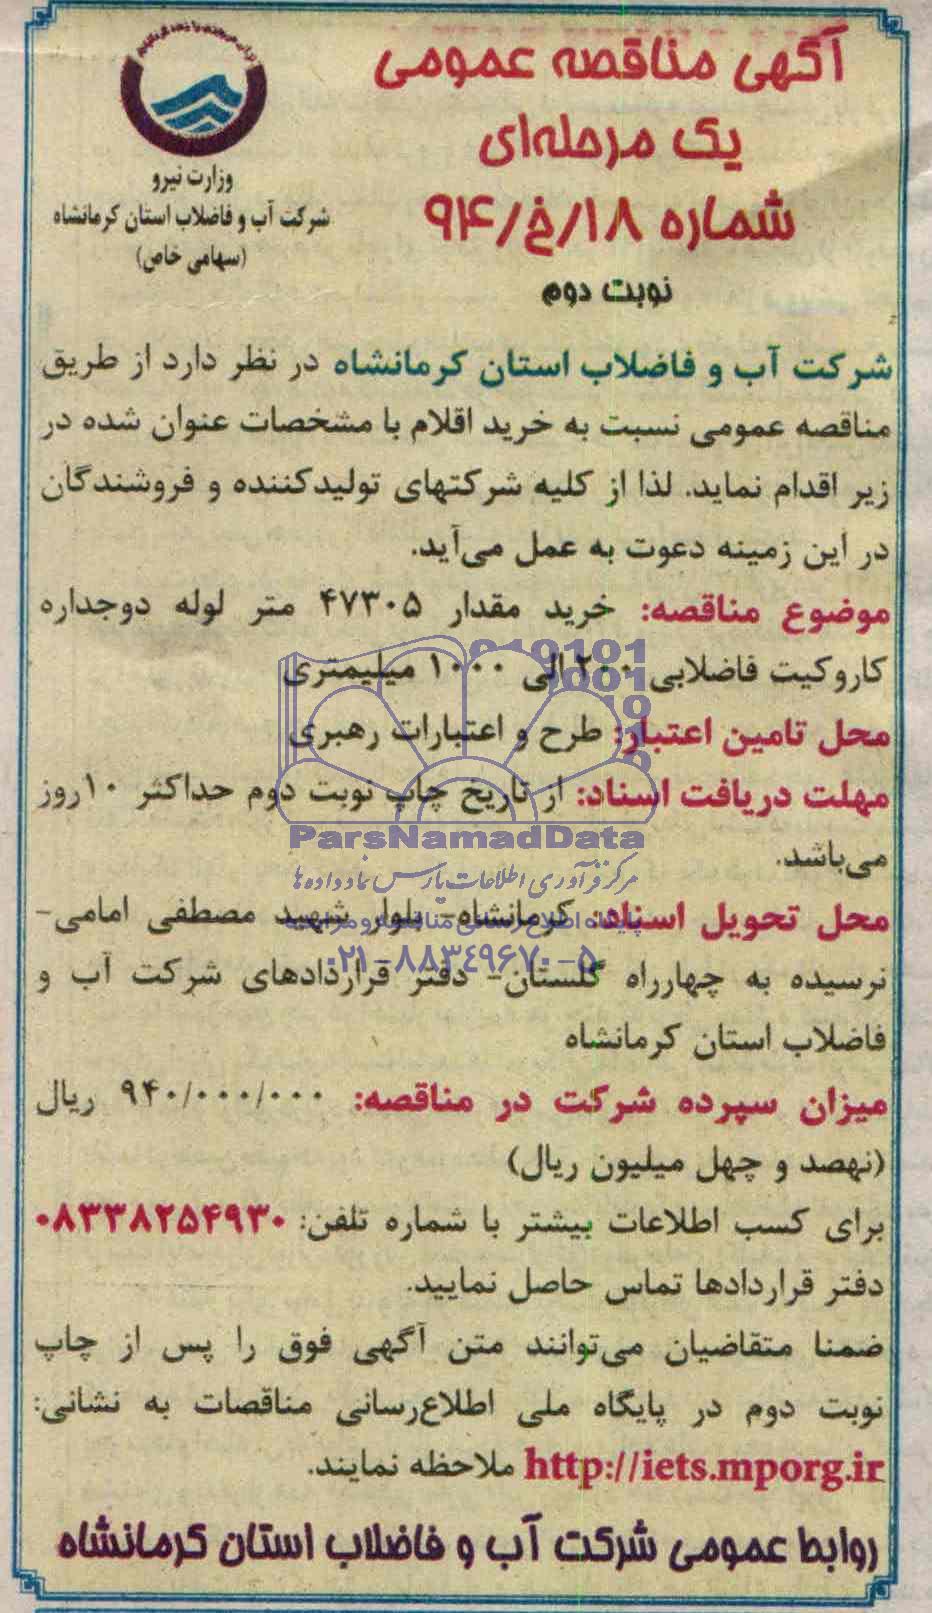 آگهی مناقصه عمومی
یک مرحله‌ای
شماره ۱۸/خ/۹۴
نوبت دوم
وزارت نیرو
شرکت آب و فاضلاب استان کرمانشاه
(سهامی خاص)
شرکت آب و فاضلاب استان کرمانشاه در نظر دارد از طریق
مناقصه عمومی نسبت به خرید اقلام با مشخصات عنوان شده در
زیر اقدام نماید. لذا از کلیه شرکتهای تولیدکننده و فروشندگان
در این زمینه دعوت به عمل می‌آید.
موضوع مناقصه: خرید مقدار ۴۷۳۰۵ متر لوله دوجداره
کاروکیت فاضلابی ۲۰۰ الی ۱۰۰۰ میلیمتری
محل تامین اعتبار: طرح و اعتبارات رهبری
مهلت دریافت اسناد: از تاریخ چاپ نوبت دوم حداکثر ۱۰روز
می‌باشد.
محل تحویل اسناد: کرمانشاه- بلوار شهید مصطفی امامی-
نرسیده به چهارراه گلستان- دفتر قراردادهای شرکت آب و
فاضلاب استان کرمانشاه
میزان سپرده شرکت در مناقصه: ۹۴۰/۰۰۰/۰۰۰ ریال
(نهصد و چهل میلیون ریال)
برای کسب اطلاعات بیشتر با شماره تلفن: ۰۸۳۳۸۲۵۴۹۳۰
دفتر قراردادها تماس حاصل نمایید.
ضمنا متقاضیان می‌توانند متن آگهی فوق را پس از چاپ
نوبت دوم در پایگاه ملی اطلاع‌رسانی مناقصات به نشانی:
http://iets.mporg.ir ملاحظه نمایند.
روابط عمومی شرکت آب و فاضلاب استان کرمانشاه
ParsNamadData
مرکز فرآوری اطلاعات پارس نماد داده ها
پایگاه اطلاع رسانی مناقصه و مزایده
۰۲۱-۸۸۳۴۹۶۷۰-۵